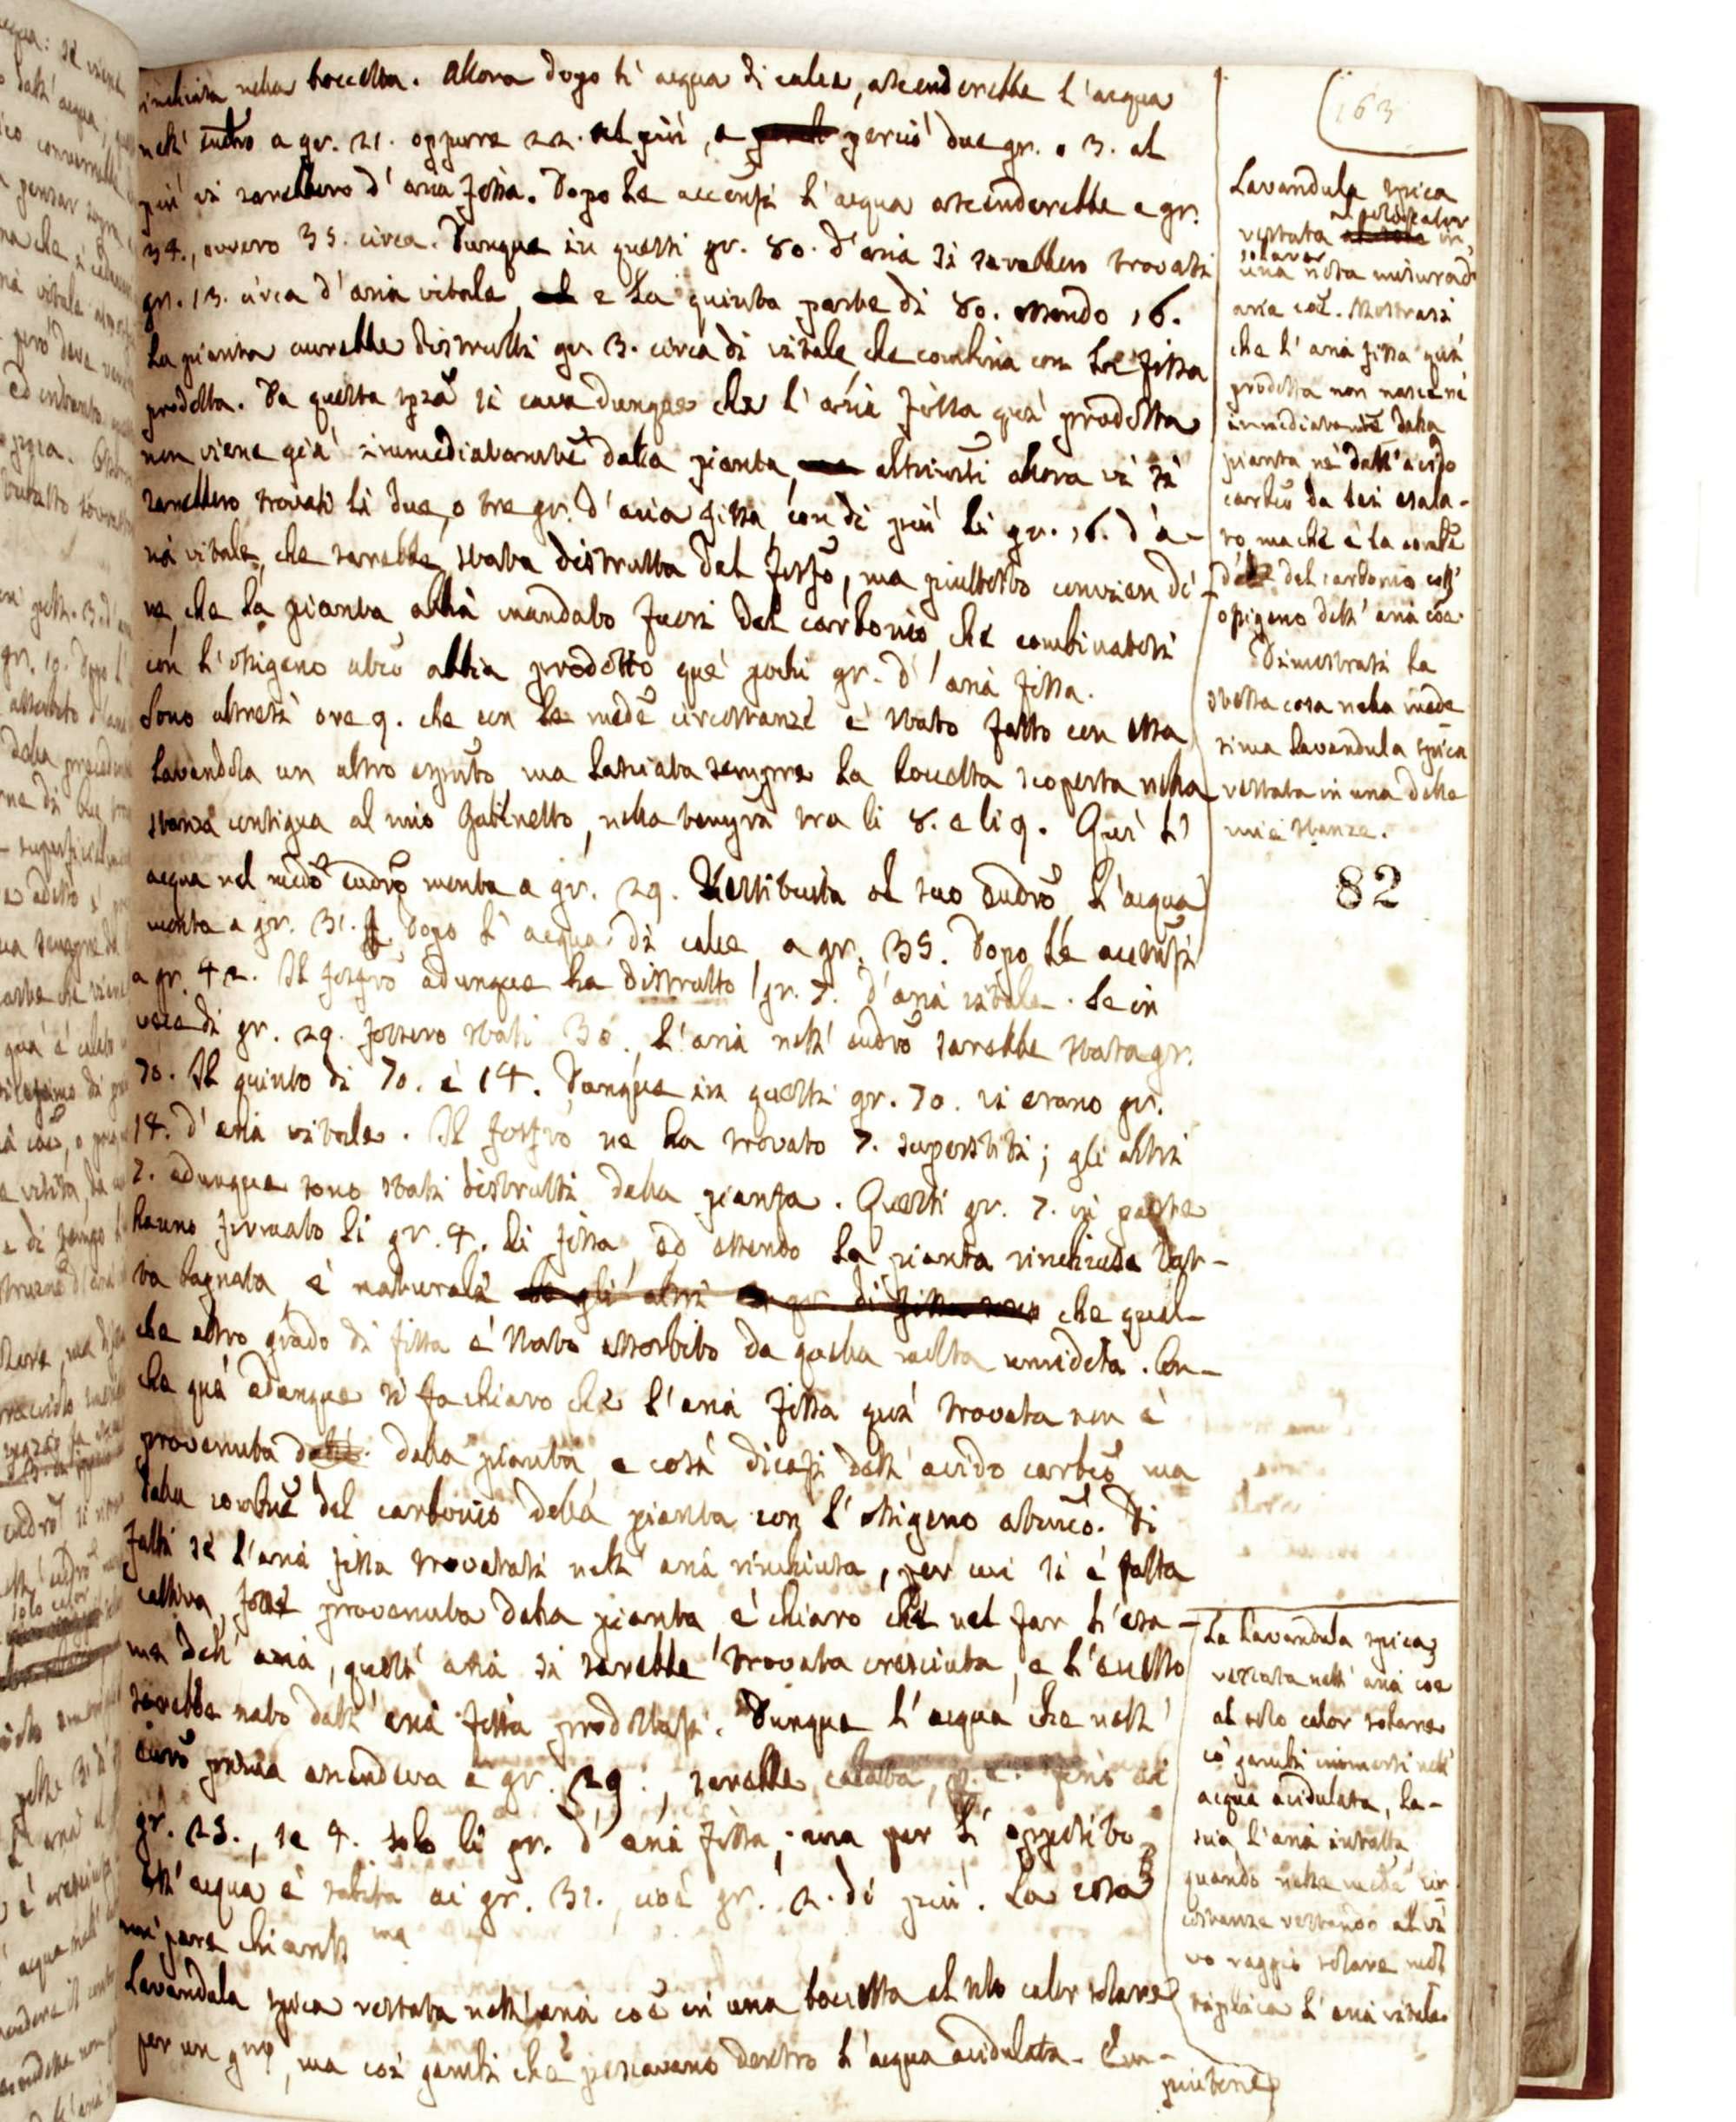 rinchiusa nella boccetta. Allora dopo l'acqua di calce, ascenderebbe l'acqua
nell' eudrõ a gr. 21. oppure 22. al più, e perciò due gr. o 3. al
più vi sarebbero d'aria fissa. Dopo le accensi l'acqua ascenderebbe a gr.
34., ovvero 35. circa. Dunque in questi gr. 80. d'aria si sarebbero trovati
gr. 13. circa d'aria vitale, e la quinta parte di 80. essendo 16.
la pianta avrebbe distrutti gr. 3. circa di vitale, che combina con la fissa
prodotta. Da questa spza si cava dunque che l'aria fissa quì prodotta
non viene già immediatamte dalla pianta, altrimti allora vi si
sarebbero trovati li due, o tre gr. d'aria fissa, con di più li gr. 16. d'a-
ria vitale, che sarebbe stata distrutta dal fosfo, ma piuttosto convien di-
re, che la pianta abbia mandato fuori del carbonio, che combinatosi
con l'ossigeno atco abbia prodotto que' pochi gr. d'aria fissa.
Sono altresì ore 9. che con le mede circostanze è stato fatto con essa
Lavandola un altro espmto ma lasciata sempre la boccetta scoperta nella
stanza contigua al mio Gabinetto, nella tempra tra li 8. e li 9. Quì l'
acqua nel medo eudro monta a gr. 29. Restituita al suo eudro l'acqua
monta a gr. 31. Dopo l'acqua di calce a gr. 35. Dopo le accensi
a gr. 42. Il fosfro adunque ha distrutto gr. 7. d'aria vitale. Se in
vece di gr. 29. fossero stati 30., l'aria nell' eudro sarebbe stata gr.
70. Il quinto di 70. è 14. Dunque in questi gr. 70. vi erano gr.
14. d'aria vitale. Il fosfro ne ha trovato 7. superstiti; gli altri
7. adunque sono stati distrutti dalla pianta. Questi gr. 7. in parte
hanno formato li gr. 4. di fissa, ed essendo la pianta rinchiusa
ta bagnata, è naturale che qual-
che altro grado di fissa è stato assorbito da quella molta umidità. An-
che quà adunque si fa chiaro che l'aria fissa quì trovata non è
provenuta dalla pianta, e così dicasi dell' acido carbco ma
dalla combne del carbonio della pianta con l'ossigeno atmco. Di
fatti se l'aria fissa trovatasi nell' aria rinchiusa, per cui si è fatta
cattiva, fosse provenuta dalla pianta, è chiaro che nel far l'esa-
me dell' aria, quest' aria si sarebbe trovata cresciuta, e l'eccesso
sarebbe nato dall' aria fissa prodottasi. Dunque l'acqua che nell'
prima ascendeva a gr. 29., sarebbe calata,
gr. 25., se 4. solo li gr. d'aria fissa; ma per l'opposito
l'acqua è salita ai gr. 31., cioè gr. 2. di più. La cosa
mi pare chiara
Lavandula spica restata nell' aria coe in una boccetta al solo calor solare
per un gno, ma coi gambi che pescavano dentro l'acqua acidulata. Em-
piutone
163
Lavandula spica
restata al solo calor
solare in
una nota misura di
aria coe. Mostrasi
che l'aria fissa quì
prodotta non nasce nè
immediatamte dalla
pianta nè dall' acido
carbco da lei esala-
to, ma che è la combne
del carbonio coll'
ossigeno dell' aria coe.
Dimostrasi la
stessa cosa nella mede
sima Lavandula spica
restata in una delle
mie stanze.
82
La Lavandula spica
restata nell' aria coe
al solo calor solare
co' gambi immersi nell'
acqua acidulata, la-
scia l'aria intatta,
quando nelle mede cir
costanze restando al vi
vo raggio solare molto
triplica l'aria vitale